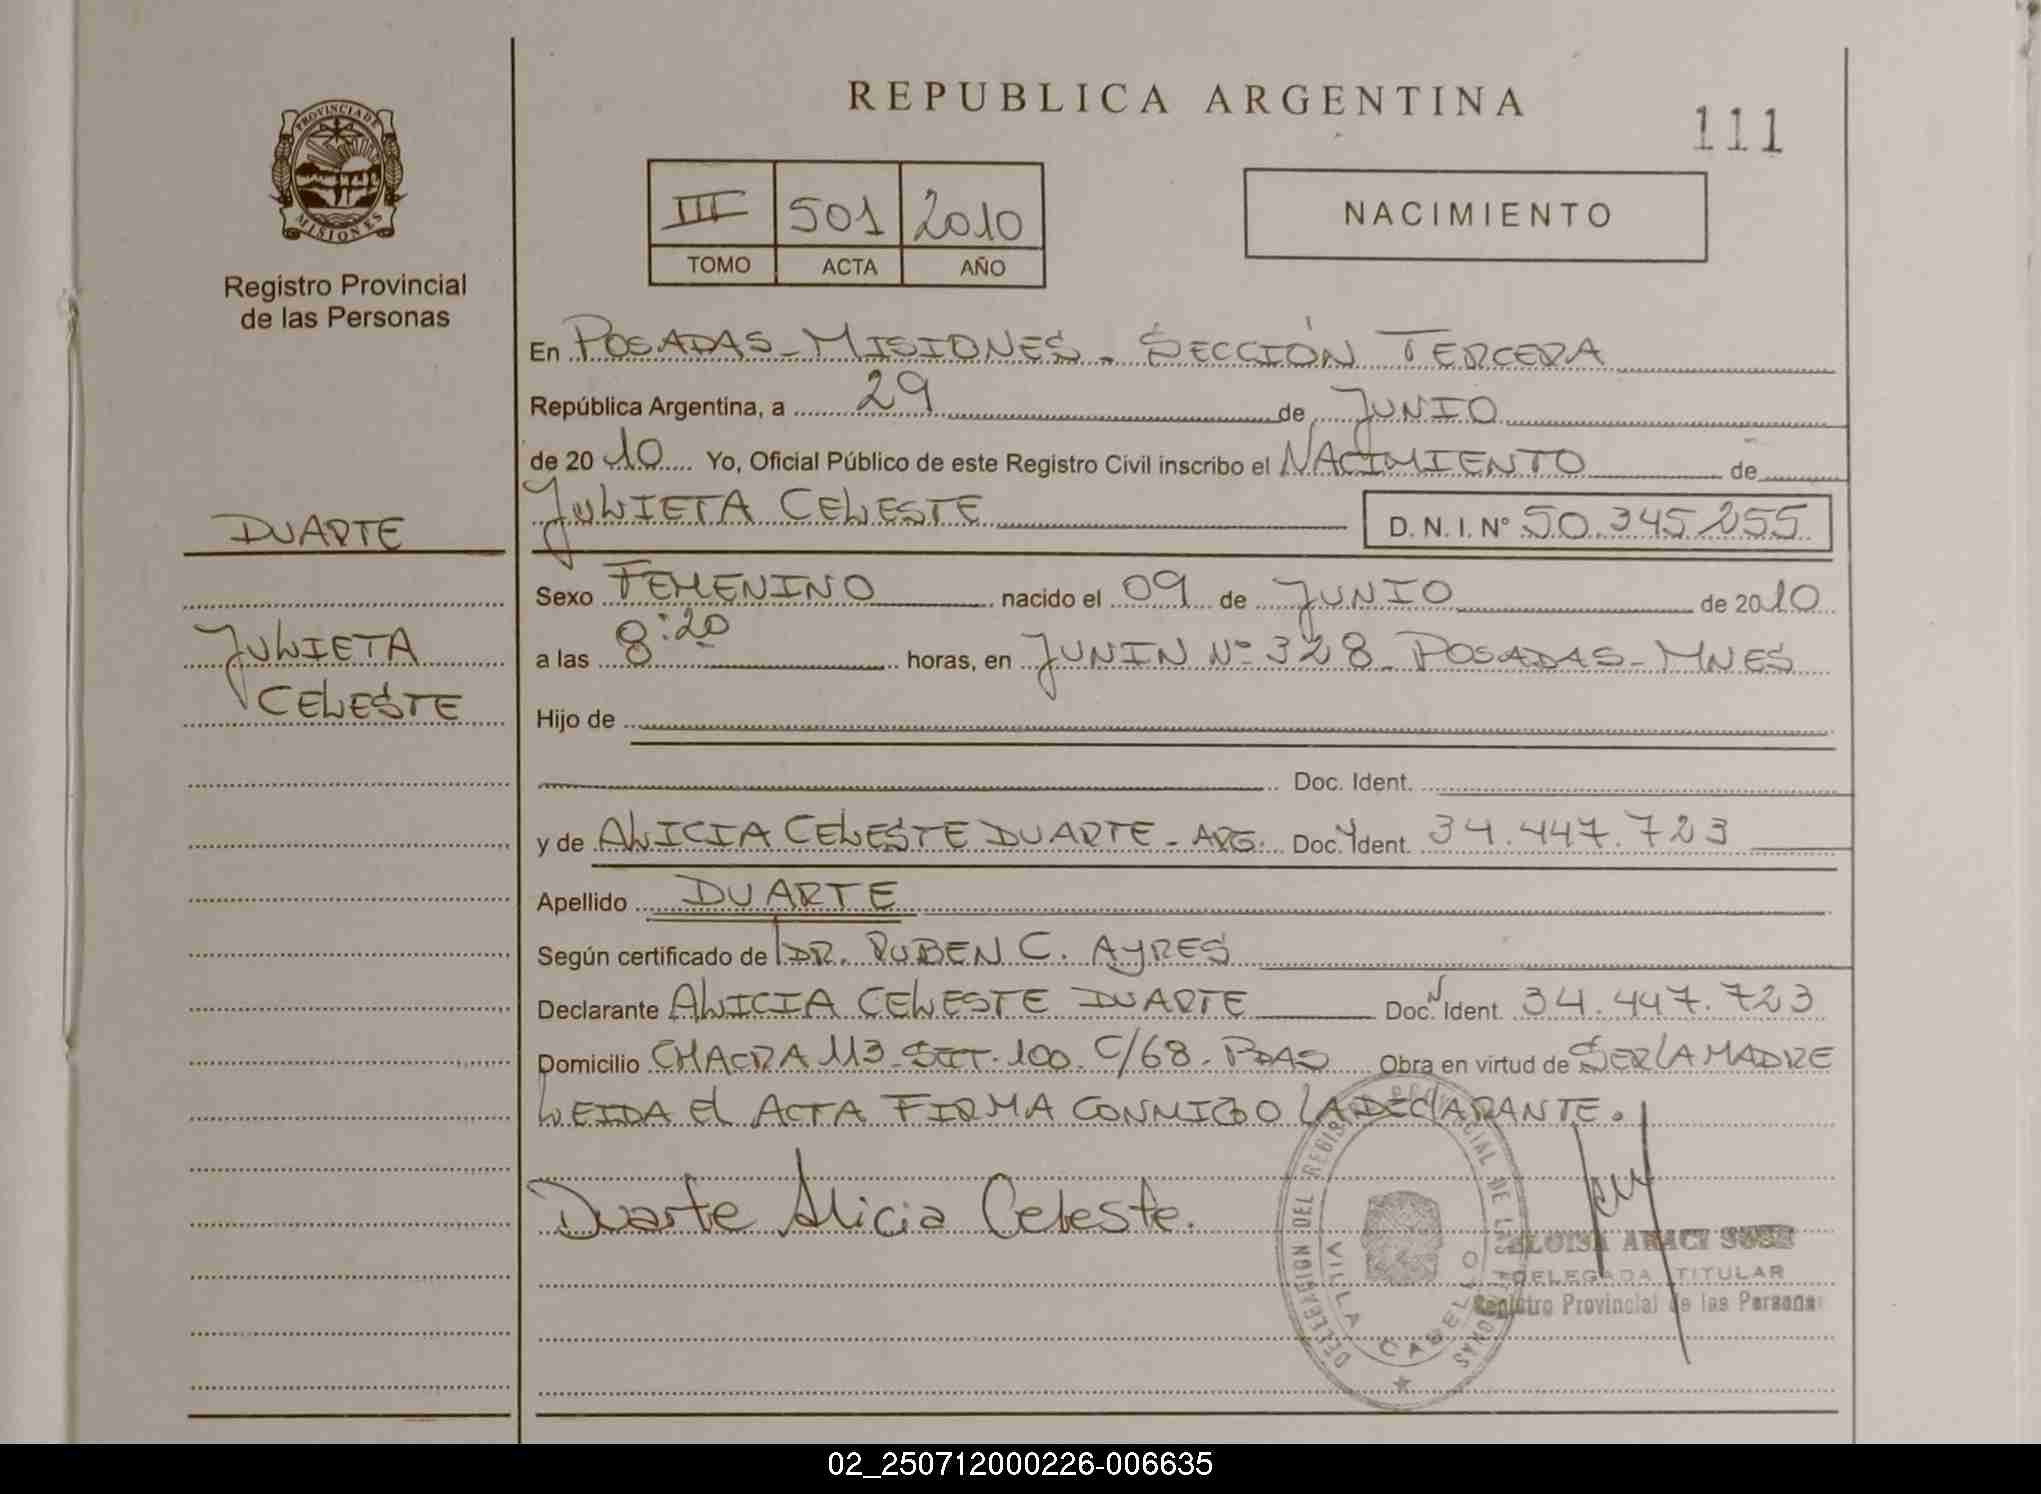 PROVINCIA DE
MISIONES
Registro Provincial
de las Personas
DUARTE
JULIETA
CELESTE
REPUBLICA ARGENTINA
111
III 501 2010
TOMO ACTA AÑO
NACIMIENTO
En POSADAS - MISIONES - SECCIÓN TERCERA
República Argentina, a 29 de JUNIO
de 2010 Yo, Oficial Público de este Registro Civil inscribo el NACIMIENTO de
JULIETA CELESTE D. N. I. N° 50.345.255
Sexo FEMENINO nacido el 09 de JUNIO de 2010
a las 8:20 horas, en JUNIN N° 328 - POSADAS - MNES
Hijo de
Doc. Ident.
y de ALICIA CELESTE DUARTE - ARG. Doc. Ident. 34.447.723
Apellido DUARTE
Según certificado de DR. RUBEN C. AYRES
Declarante ALICIA CELESTE DUARTE Doc. Ident. 34.447.723
Domicilio CHACRA 113 - SECT. 100. C/68 - PDAS Obra en virtud de SER LA MADRE
LEIDA EL ACTA FIRMA CONMIGO LA DECLARANTE.
Duarte Alicia Celeste.
DELEGACION DEL REGISTRO PROVINCIAL DE LAS PERSONAS
VILLA CABELLO
ELOISA ARACI
DELEGADA TITULAR
Registro Provincial de las Personas
02_250712000226-006635